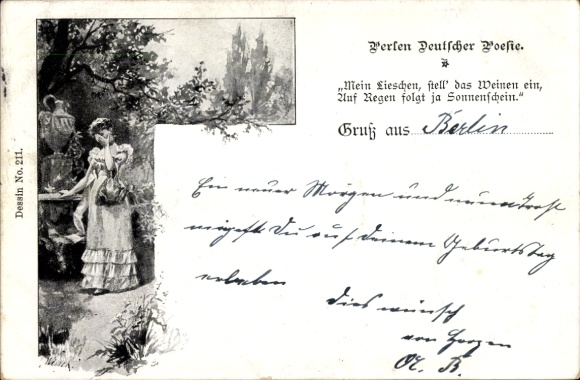 Perlen Deutscher Poesie.
„Mein Lieschen, stell' das Weinen ein,
Auf Regen folgt ja Sonnenschein.“
Gruß aus Berlin
Ein neuer Morgen und neuen Trost
mögest Du auf deinem Geburtstag
erleben
dies wünscht
von Herzen
A. B.
Dessin No. 211.